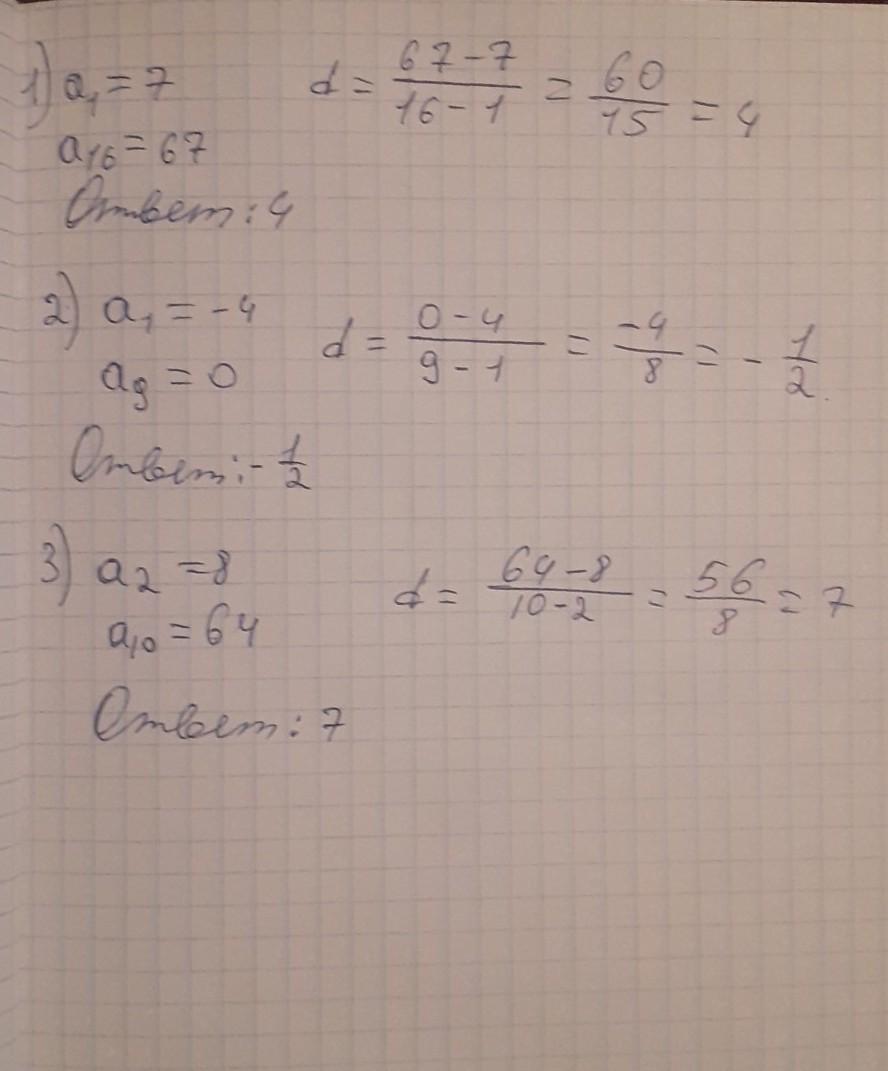 1) a₁ = 7 d = (67-7)/(16-1) = 60/15 = 4
a₁₆ = 67
Ответ: 4
2) a₁ = -4 d = (0-4)/(9-1) = -4/8 = -1/2
a₉ = 0
Ответ: -1/2
3) a₂ = 8 d = (64-8)/(10-2) = 56/8 = 7
a₁₀ = 64
Ответ: 7